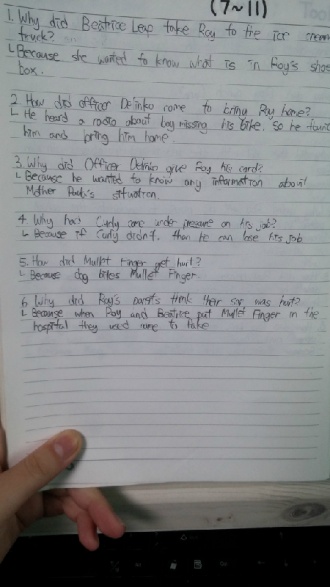 (7~11)
1. Why did Beatrice Leap take Roy to the ice cream
truck?
Because she wanted to know what is in Roy's shoe
box.
2. How did officer Delinko come to bring Roy home?
He heard a radio about boy missing his bike. So he found
him and bring him home.
3. Why did Officer Delinko give Roy his card?
Because he wanted to know any information about
Mother Paula's situation.
4. Why has Curly come under pressure on his job?
Because if Curly didn't, than he can lose his job
5. How did Mullet Finger get hurt?
Because dog bites Mullet Finger.
6. Why did Roy's parents think their son was hurt?
Because when Roy and Beatrice put Mullet Finger in the
hospital they used name to fake